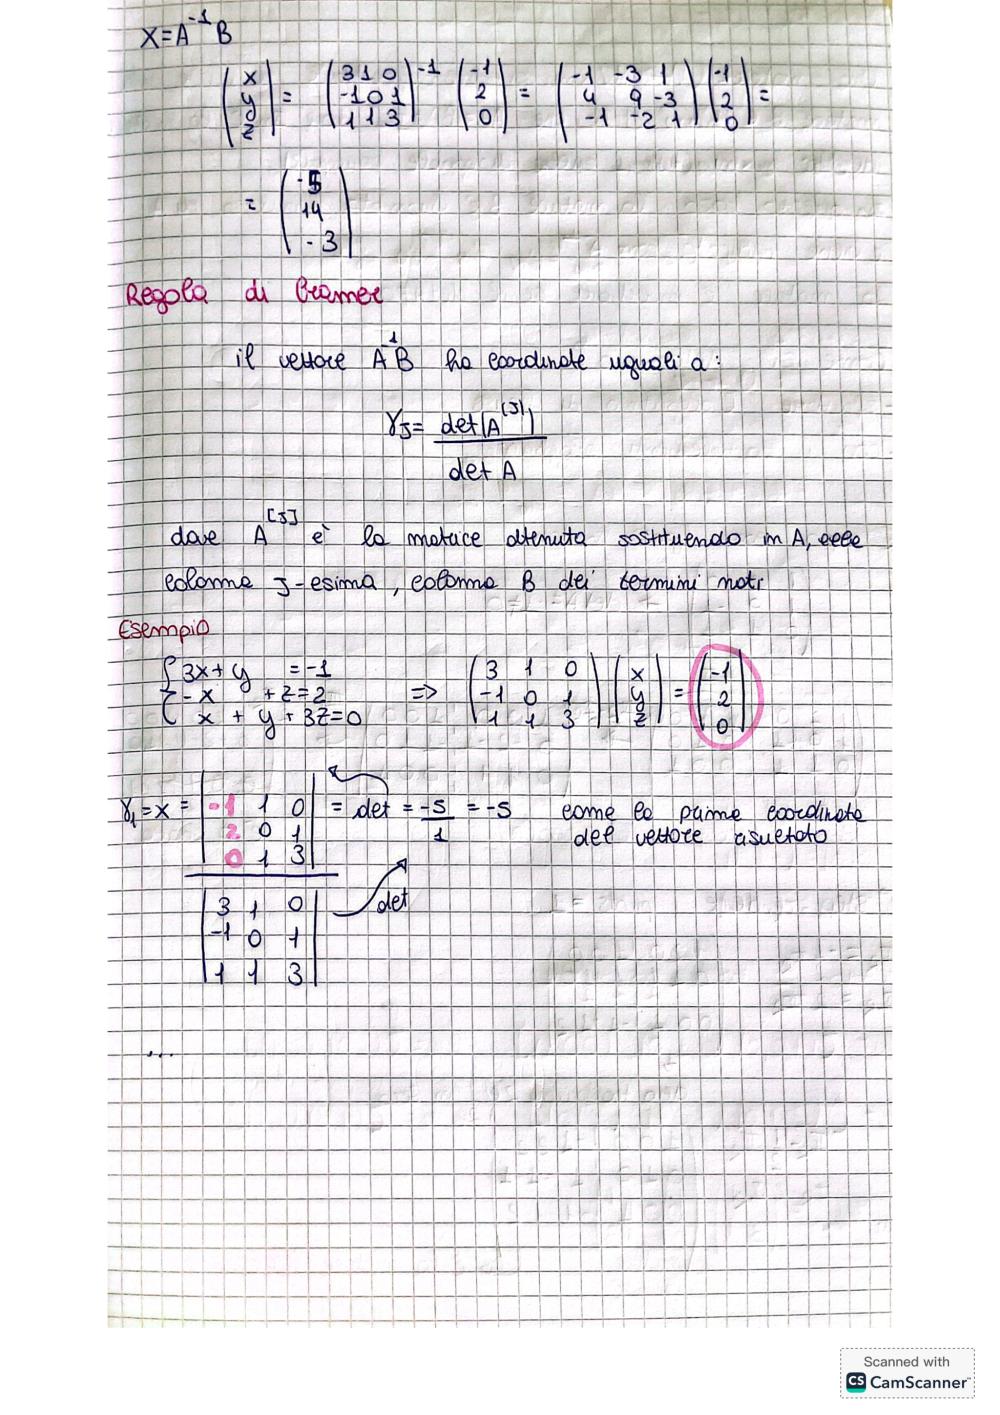 X=A⁻¹B
(x y z) = (3 1 0 / -1 0 1 / 1 1 3)⁻¹ (-1 2 0) = (-1 -3 1 / 4 9 -3 / -1 -2 1) (-1 2 0) =
= (-5 14 -3)
Regola di Cramer
il vettore A⁻¹B ha coordinate uguali a:
γ_J = det(A^(J)) / det A
dove A^[J] è la matrice ottenuta sostituendo in A, alla
colonna J-esima, colonna B dei termini noti
Esempio
{ 3x+y =-1
-x +z=2
x + y + 3z=0
=> (3 1 0 / -1 0 1 / 1 1 3) (x y z) = (-1 2 0)
γ₁=x = |-1 1 0 / 2 0 1 / 0 1 3| = det = -5/1 = -5 come la prima coordinata
del vettore
|3 1 0 / -1 0 1 / 1 1 3| det
...
Scanned with
CS CamScanner™